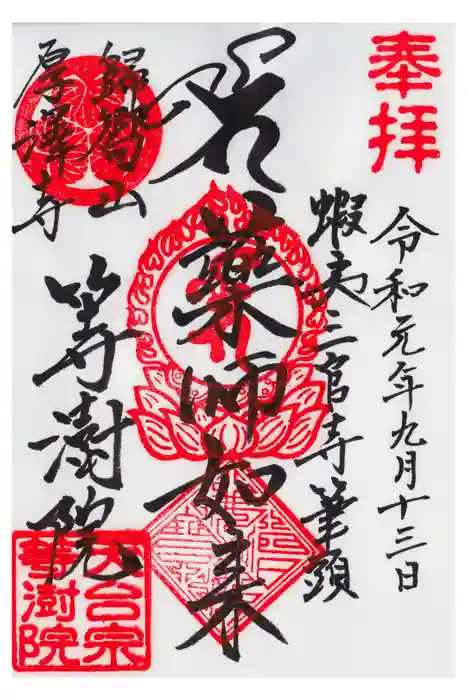 奉拝
令和元年九月十三日
蝦夷三官寺筆頭
薬師如来
帰嚮山
厚澤寺
等澍院
天台宗
等澍院